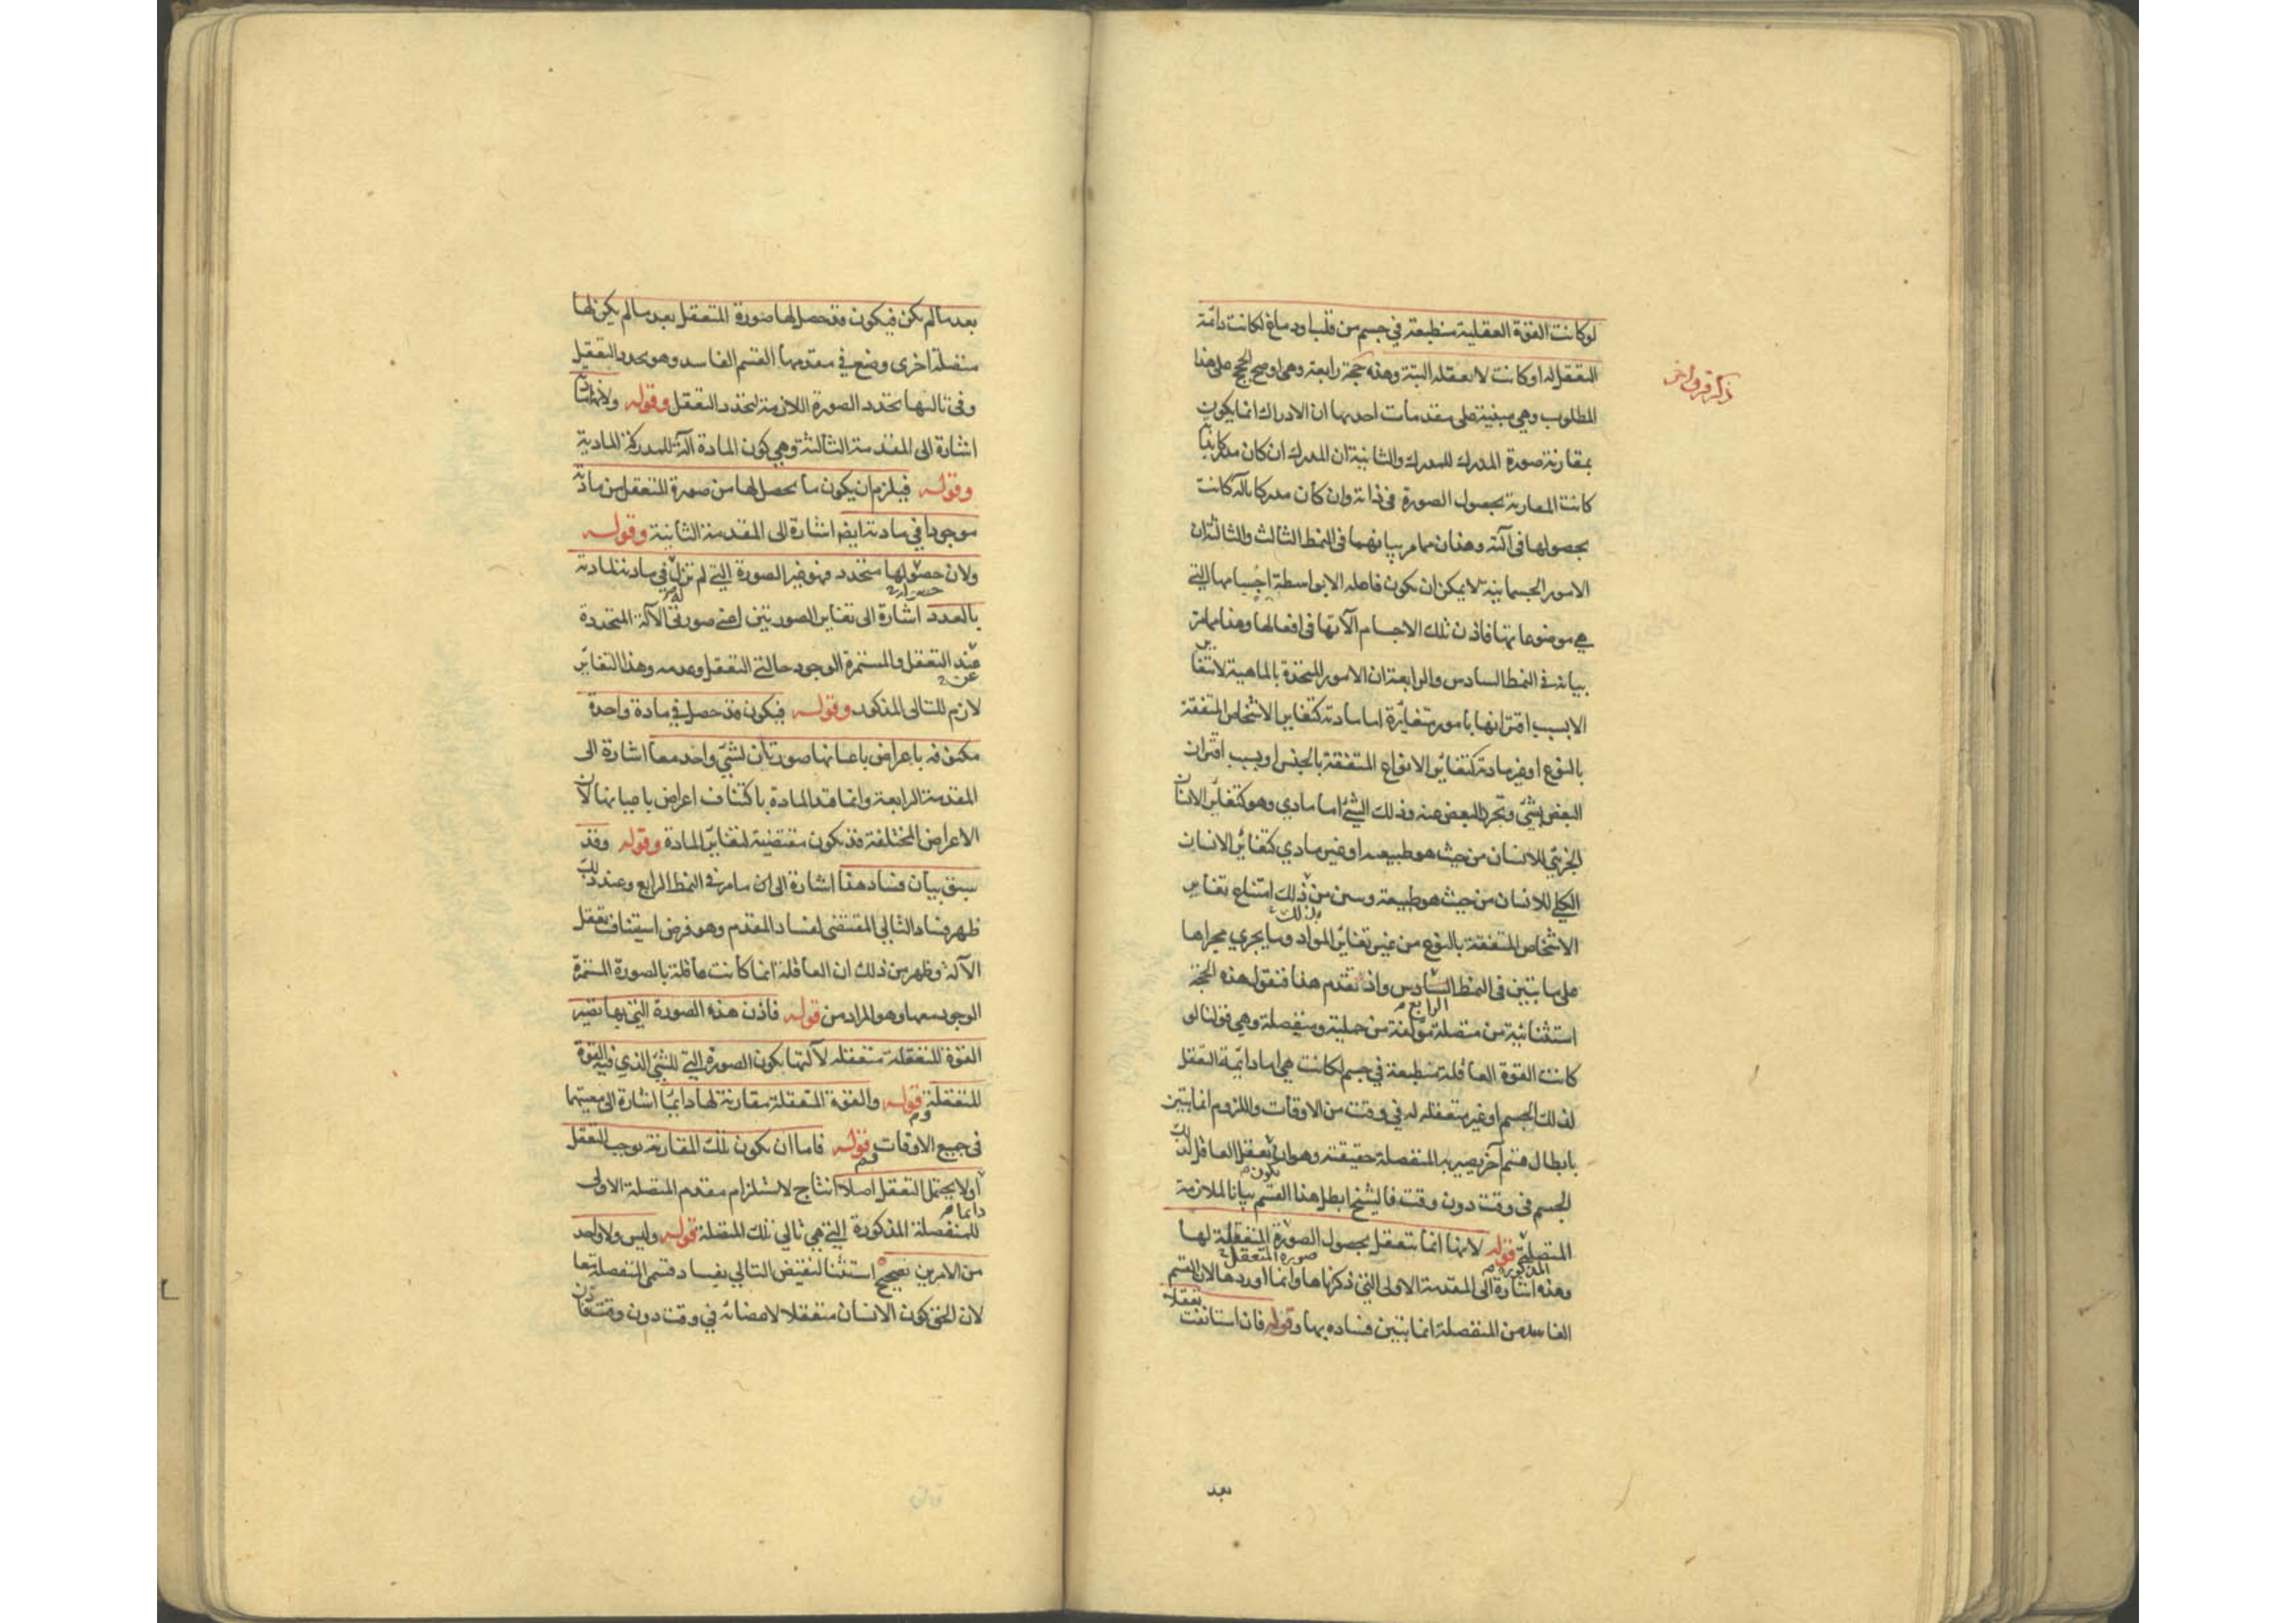 لوكانت القوة العقلية منطبعة في جسم من قلب او دماغ لكانت دائمة
التعقل له او كانت لا تعقله البتة وهذه حجة رابعة وهي اوضح الحجج على هذا
المطلوب وهي مبنية على مقدمات احديها ان الادراك انما يكون
بمقارنة صورة المدرك للمدرك والثانية ان المدرك ان كان مدركا بذاته
كانت المقارنة بحصول الصورة في ذاته وان كان مدركا بآلة كانت
بحصولها في آلته وهذان مما مر بيانهما في النمط الثالث والثالثة ان
الامور الجسمانية لا يمكن ان يكون فاعله الا بواسطة اجسامها التي
هي موضوعاتها فاذن تلك الاجسام آلاتها في افعالها وهذا مما مر
بيانه في النمط السادس والرابعة ان الامور المتحدة بالماهية لا تتغاير
الا بسبب اقترانها بامور متغايرة اما مادته كتغاير الاشخاص المتفقة
بالنوع او غير مادته كتغاير الانواع المتفقة بالجنس او بسبب اقتران
البعض بشيء وتجرد البعض عنه وذلك الشيء اما مادي وهو كتغاير الانسان
الجزئي للانسان من حيث هو طبيعة او غير مادي كتغاير الانسان
الكلي للانسان من حيث هو طبيعة وسن من ذلك امتناع تغاير
الاشخاص المتفقة بالنوع من غير تغاير المواد وما يجري مجراها
على ما تبين في النمط السادس واذ تقدم هذا فنقول هذه الحجة
الرابع
استثنائية من متصلة مؤلفة من حملية ومنفصلة وهي قولنا لو
كانت القوة العاقلة منطبعة في جسم لكانت هي اما دائمة التعقل
لذلك الجسم او غير متعقله له في وقت من الاوقات واللزوم انما يتبين
بابطال قسم آخر يصير به المنفصلة حقيقته وهو ان تعقل العاقل لذلك
يكون
الجسم في وقت دون وقت فالشيخ ابطل هذا القسم بيانا للملازمة
المتصلة قوله لانها انما تتعقل بحصول الصورة المتعقلة لها
المذكورة صورة المتعقل
وهذه اشارة الى المقدمة الاولى التي ذكرناها وانما اوردها لان القسم
الفاسد من المنفصلة انما يتبين فساده بها وقوله فان استانفت تعقلا
بعد
ذكر فرق اخر
بعد ما لم يكن فيكون قد حصل لها صورة المتعقل بعد ما لم يكن لها
متصلة اخرى وضع في مقدمها القسم الفاسد وهو تجدد التعقل
وفي تاليها تجدد الصورة اللازمة لتجدد التعقل وقوله ولانها مادية
اشارة الى المقدمة الثالثة وهي كون المادة آلة للمدركة المادية
وقوله فيلزم ان يكون ما يحصل لها من صورة المتعقل من مادته
موجودا في مادته ايضا اشارة الى المقدمة الثانية وقوله
ولان حصولها متجدد فهو غير الصورة التي لم تزل في مادته لمادته
بالعدد اشارة الى تغاير الصورتين اعني صورتي الآلة المتجددة
عند التعقل والمستمرة الوجود حالتي التعقل وعدمه وهذا التغاير
لازم للتالي المذكور وقوله فيكون قد حصل في مادة واحدة
مكنوفة باعراض باعيانها صورتان لشيء واحد معا اشارة الى
المقدمة الرابعة وانما قيد المادة باكتناف اعراض باعيانها لان
الاعراض المختلفة قد يكون مقتضية لتغاير المادة وقوله وقد
سبق بيان فساد هذا اشارة الى ان ما مر في النمط الرابع وعند ذلك
ظهر فساد التالي المقتضي لفساد المقدم وهو فرض استيناف تعقل
الآلة وظهر من ذلك ان العاقلة انما كانت عاقلة بالصورة المستمرة
الوجود معها وهو المراد من قوله فاذن هذه الصورة التي بها تصير
القوة المتعقلة متعقله لآلتها يكون الصورة التي للشيء الذي فيه القوة
المتعقلة قوله والقوة المتعقلة مقارنة لها دائما اشارة الى معيتهما
في جميع الاوقات قوله فاما ان يكون تلك المقارنة يوجب التعقل
او لا يحتمل التعقل اصلا انتاج لاستلزام مقدم المتصلة الاولى
دائما
للمنفصلة المذكورة التي هي تالي تلك المتصلة قوله وليس ولا واحد
من الامرين بصحيح استثنا لنقيض التالي بفساد قسمي المنفصلة معا
لان الحق كون الانسان متعقلا لاعضائه في وقت دون وقت